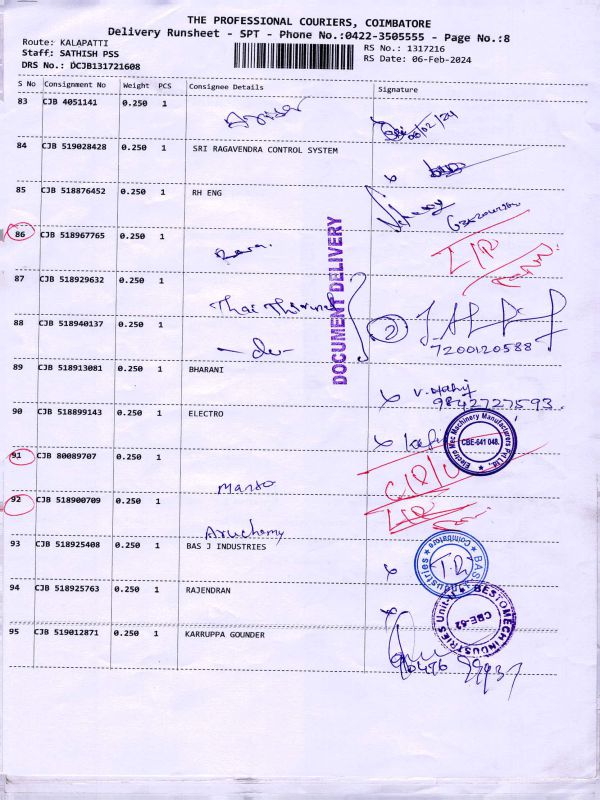 THE PROFESSIONAL COURIERS, COIMBATORE
Delivery Runsheet - SPT - Phone No.:0422-3505555 - Page No.:8
Route: KALAPATTI
Staff: SATHISH PSS
DRS No.: DCJB131721608
RS No.: 1317216
RS Date: 06-Feb-2024
S No Consignment No Weight PCS Consignee Details Signature
83 CJB 4051141 0.250 1 06/02/24
84 CJB 519028428 0.250 1 SRI RAGAVENDRA CONTROL SYSTEM
85 CJB 518876452 0.250 1 RH ENG
86 CJB 518967765 0.250 1
DOCUMENT DELIVERY
87 CJB 518929632 0.250 1
Thai
88 CJB 518940137 0.250 1 - do - 2
7200120588
89 CJB 518913081 0.250 1 BHARANI
9842727593
90 CJB 518899143 0.250 1 ELECTRO
Electro Mec Machinery Manufacturers Pvt Ltd.
CBE-641 048.
91 CJB 80089707 0.250 1
92 CJB 518900709 0.250 1
Aruchamy
93 CJB 518925408 0.250 1 BAS J INDUSTRIES
BAS Industries Coimbatore
94 CJB 518925763 0.250 1 RAJENDRAN
BESTOMECH INDUSTRIES
CBE-62
95 CJB 519012871 0.250 1 KARRUPPA GOUNDER